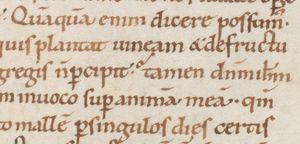 Quaquā enim dicere possum᛫
quis plantat uineam & de fructu
gregis n̄ p̄cipit᛫ tamen dn̄m
m inuoco sup animā meā᛫ qm̄
to malle p singulos dies certis